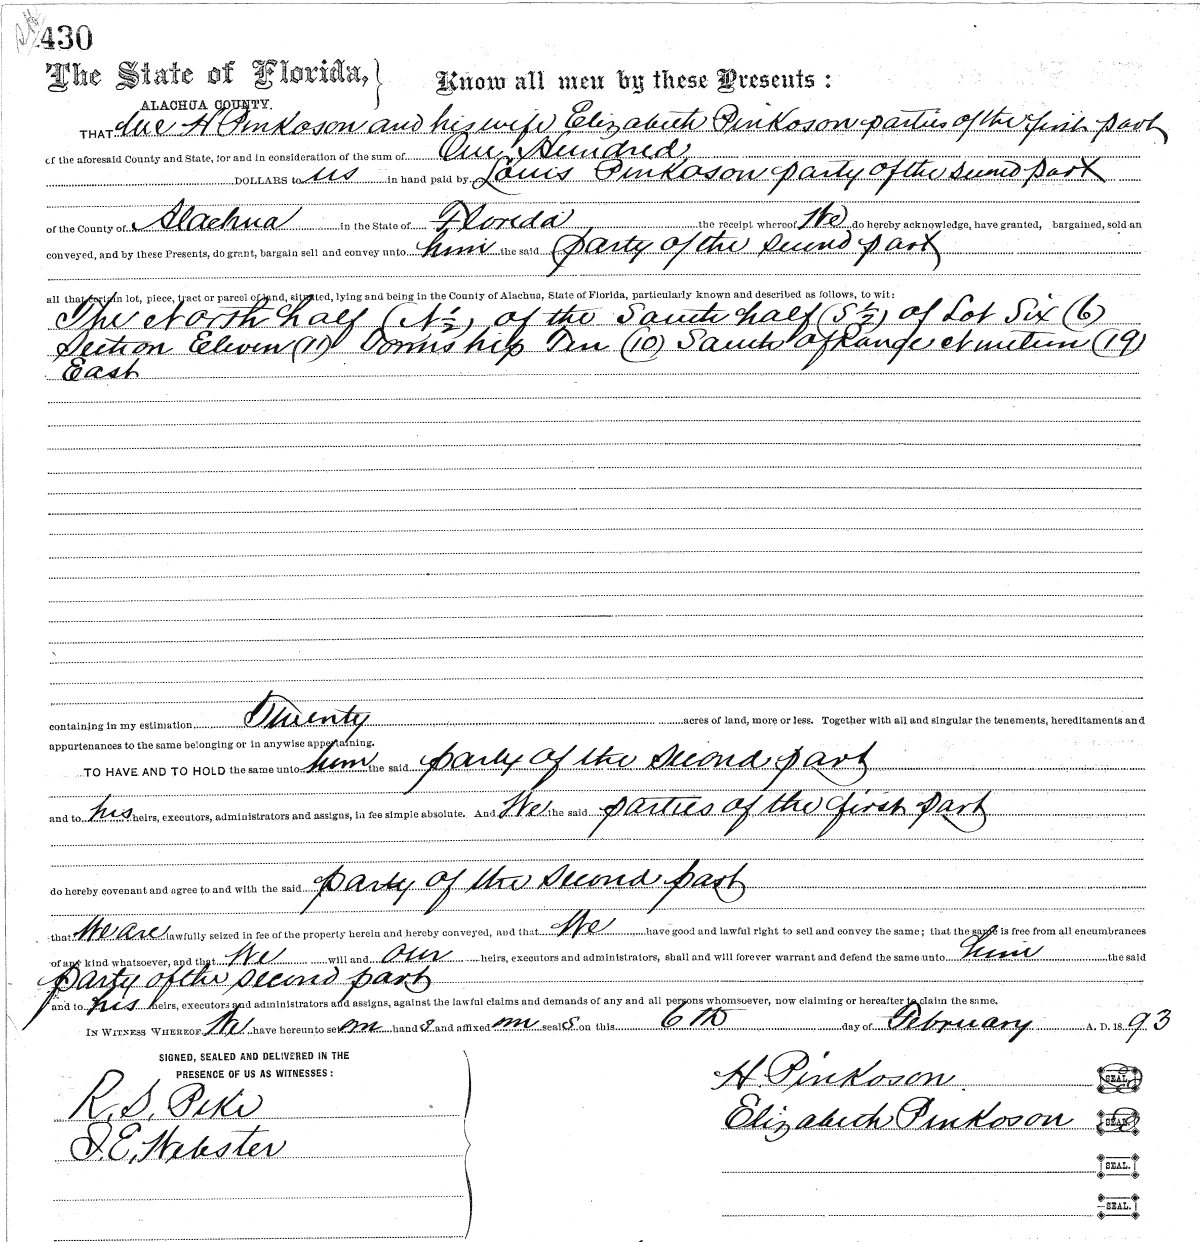 430
The State of Florida,
ALACHUA COUNTY.
Know all men by these Presents:
THAT We H Pinkoson and his wife Elizabeth Pinkoson parties of the first part
of the aforesaid County and State, for and in consideration of the sum of One Hundred
DOLLARS to us in hand paid by Louis Pinkoson party of the second part
of the County of Alachua in the State of Florida the receipt whereof We do hereby acknowledge, have granted, bargained, sold an
conveyed, and by these Presents, do grant, bargain sell and convey unto him the said party of the second part
all that certain lot, piece, tract or parcel of land, situated, lying and being in the County of Alachua, State of Florida, particularly known and described as follows, to wit:
The North half (N ½) of the South half (S ½) of Lot Six (6)
Section Eleven (11) Township Ten (10) South of Range Nineteen (19)
East
containing in my estimation Twenty acres of land, more or less. Together with all and singular the tenements, hereditaments and
appurtenances to the same belonging or in anywise appertaining.
TO HAVE AND TO HOLD the same unto him the said party of the second part
and to his heirs, executors, administrators and assigns, in fee simple absolute. And We the said parties of the first part
do hereby covenant and agree to and with the said party of the second part
that We are lawfully seized in fee of the property herein and hereby conveyed, and that We have good and lawful right to sell and convey the same; that the same is free from all encumbrances
of any kind whatsoever, and that We will and our heirs, executors and administrators, shall and will forever warrant and defend the same unto him the said
party of the second part
and to his heirs, executors and administrators and assigns, against the lawful claims and demands of any and all persons whomsoever, now claiming or hereafter to claim the same.
IN WITNESS WHEREOF We have hereunto set our hand s and affixed our seal s on this 6th day of February A. D. 18 93
SIGNED, SEALED AND DELIVERED IN THE
PRESENCE OF US AS WITNESSES:
H. Pinkoson SEAL.
R. S. Pike
Elizabeth Pinkoson SEAL.
J. E. Webster
SEAL.
SEAL.